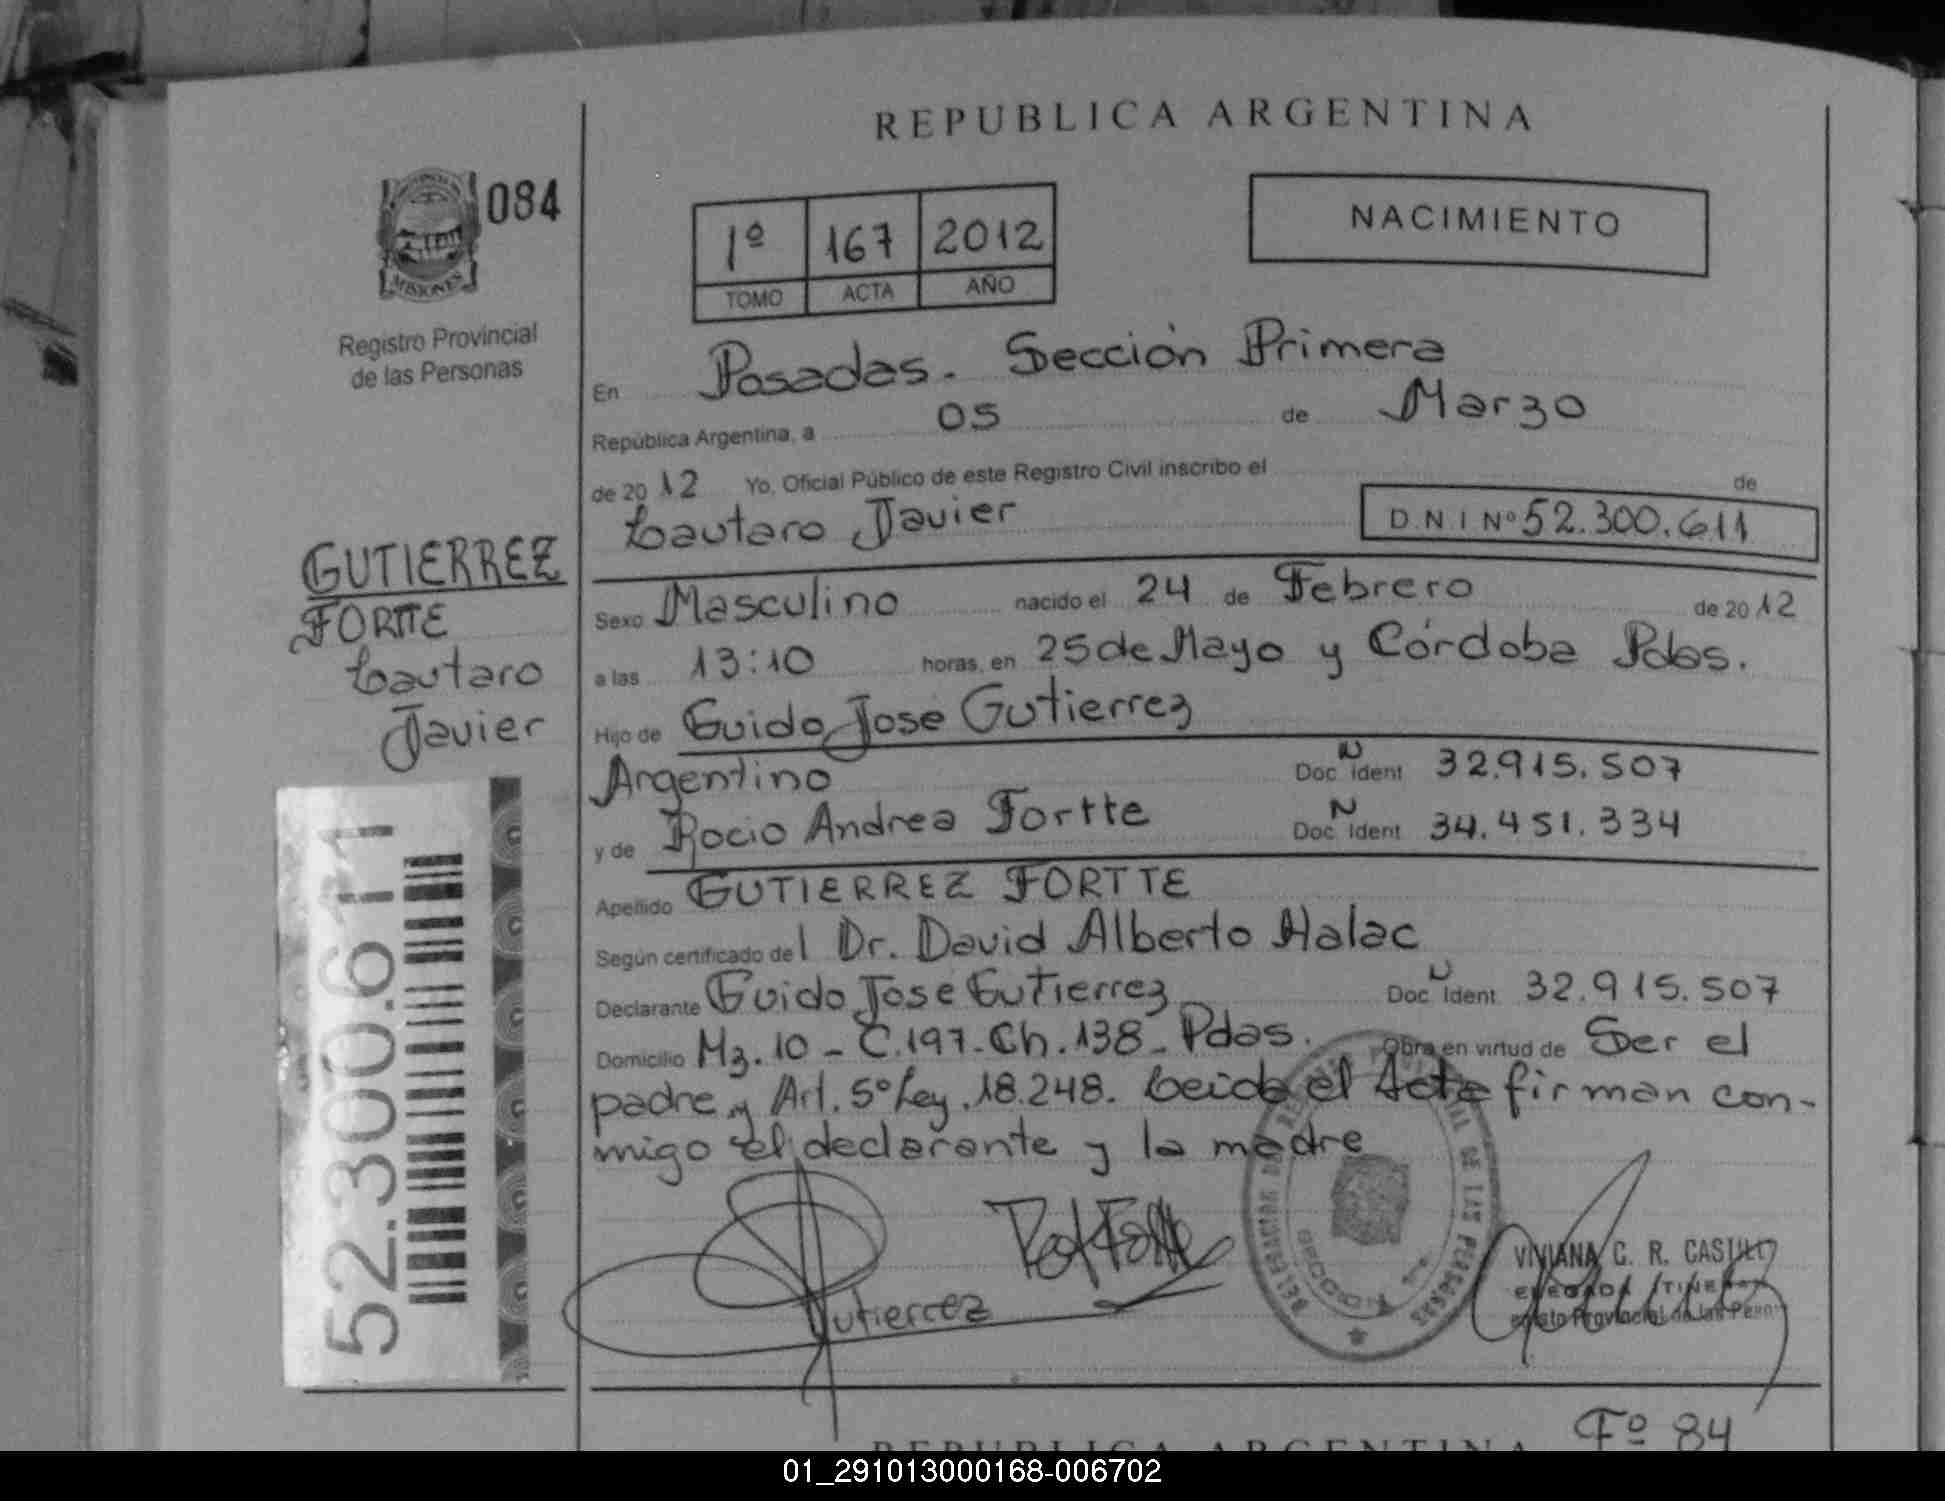 REPUBLICA ARGENTINA
084
MISIONES
Registro Provincial
de las Personas
1º 167 2012
TOMO ACTA AÑO
NACIMIENTO
En Posadas. Sección Primera
República Argentina, a 05 de Marzo
de 2012 Yo, Oficial Público de este Registro Civil inscribo el de
Lautaro Javier D.N.I Nº 52.300.611
GUTIERREZ
FORTTE
Lautaro
Javier
Sexo Masculino nacido el 24 de Febrero de 2012
a las 13:10 horas, en 25 de Mayo y Córdoba Pdas.
Hijo de Guido José Gutierrez
Argentino Doc. N Ident 32.915.507
y de Rocio Andrea Fortte Doc. N Ident 34.451.334
Apellido GUTIERREZ FORTTE
Según certificado del Dr. David Alberto Halac
Declarante Guido José Gutierrez Doc. N Ident. 32.915.507
Domicilio Mz. 10 - C.197 - Ch. 138 - Pdas. Obra en virtud de Ser el
padre y Art. 5º Ley. 18.248. Leida el Acta firman con-
migo el declarante y la madre
52.300.611
Gutierrez
DE LAS PERSONAS
VIVIANA C. R. CASTILLO
Provincial de las Pers
Fº 84
REPUBLICA ARGENTINA
01_291013000168-006702